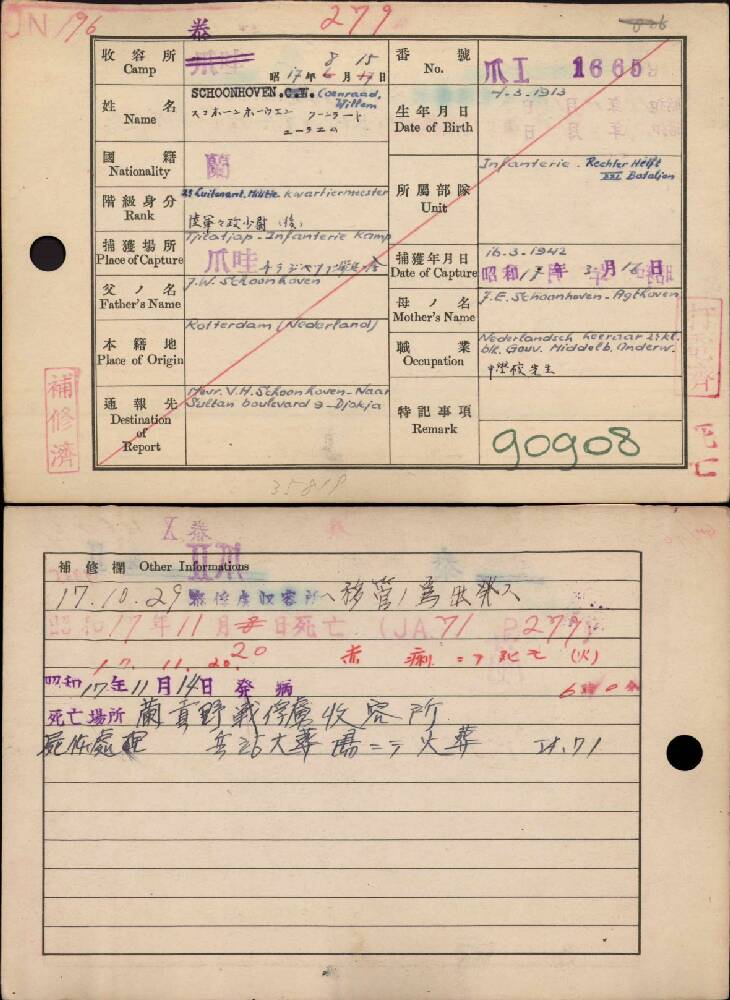 JN 196
泰
279
收容所 Camp
爪哇
昭17年8月15日
番號 No.
爪I 1665
姓名 Name
SCHOONHOVEN. C.W. (Coenraad, Willem
スコホーンホーウエン クーンラード
生年月日 Date of Birth
1-3-1913
國籍 Nationality
蘭
階級身分 Rank
2e Luitenant. Militie Kwartiermeester
所屬部隊 Unit
Infanterie. Rechter Helft
XXI Bataljon
捕獲場所 Place of Capture
Tjilatjap - Infanterie Kamp
爪哇
捕獲年月日 Date of Capture
16-3-1942
昭和17年3月16日
父ノ名 Father's Name
J.W. Schoonhoven
母ノ名 Mother's Name
J.E. Schoonhoven - Agthoven
本籍地 Place of Origin
Rotterdam (Nederland)
職業 Occupation
Nederlandsch leeraar 2e kl.
b/k. Gouv. Middelb. Onderw.
通報先 Destination of Report
Mevr. V.H. Schoonhoven - Naar
Sultan boulevard 9 - Djokja
特記事項 Remark
90908
補修濟
死亡
35819
泰
補修欄 Other Informations
17.10.29 泰俘虜收容所へ移管ノ為出発ス
昭和17年11月 日死亡 (JA.71 P.277)
17. 11. 20.
20 赤痢ニテ死亡 (火)
昭和17年11月14日 発病
死亡場所
屍体處理 火葬 JA.71